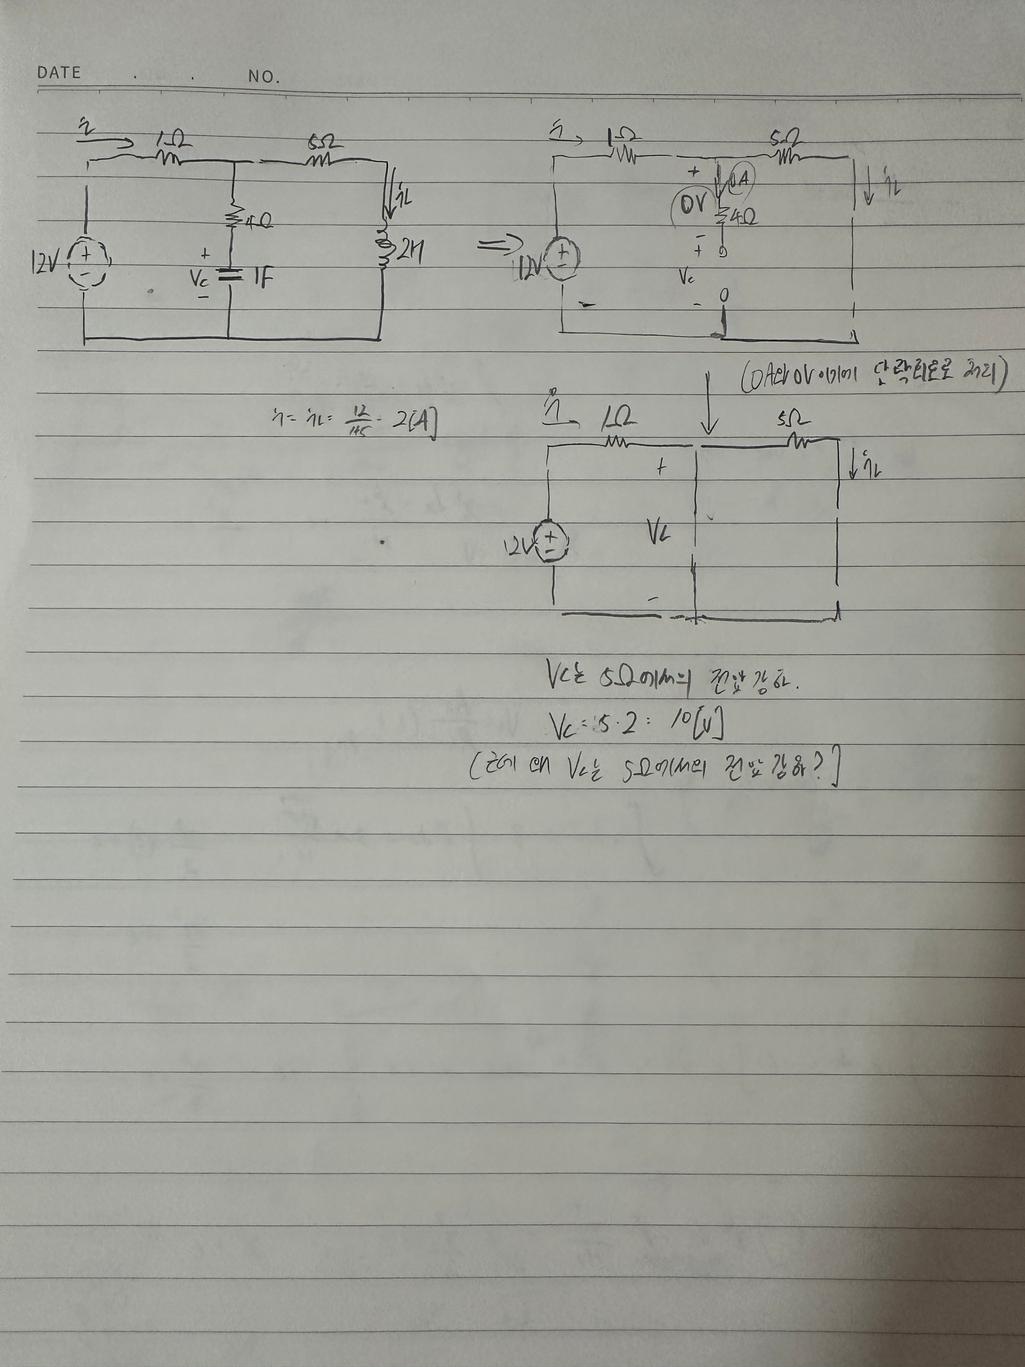 DATE . . NO.
i
1Ω
5Ω
iL
4Ω
12V
+
-
+
Vc
-
1F
2H
⇒
i
1Ω
5Ω
iL
+
0V
0A
4Ω
-
12V
+
-
+
Vc
-
(0A와 0V 이기에 단락회로로 처리)
i = iL = 12/1+5 = 2[A]
i
1Ω
5Ω
iL
+
Vc
-
12V
+
-
Vc는 5Ω에서의 전압강하.
Vc = 5·2 = 10[V]
(근데 왜 Vc는 5Ω에서의 전압강하?]